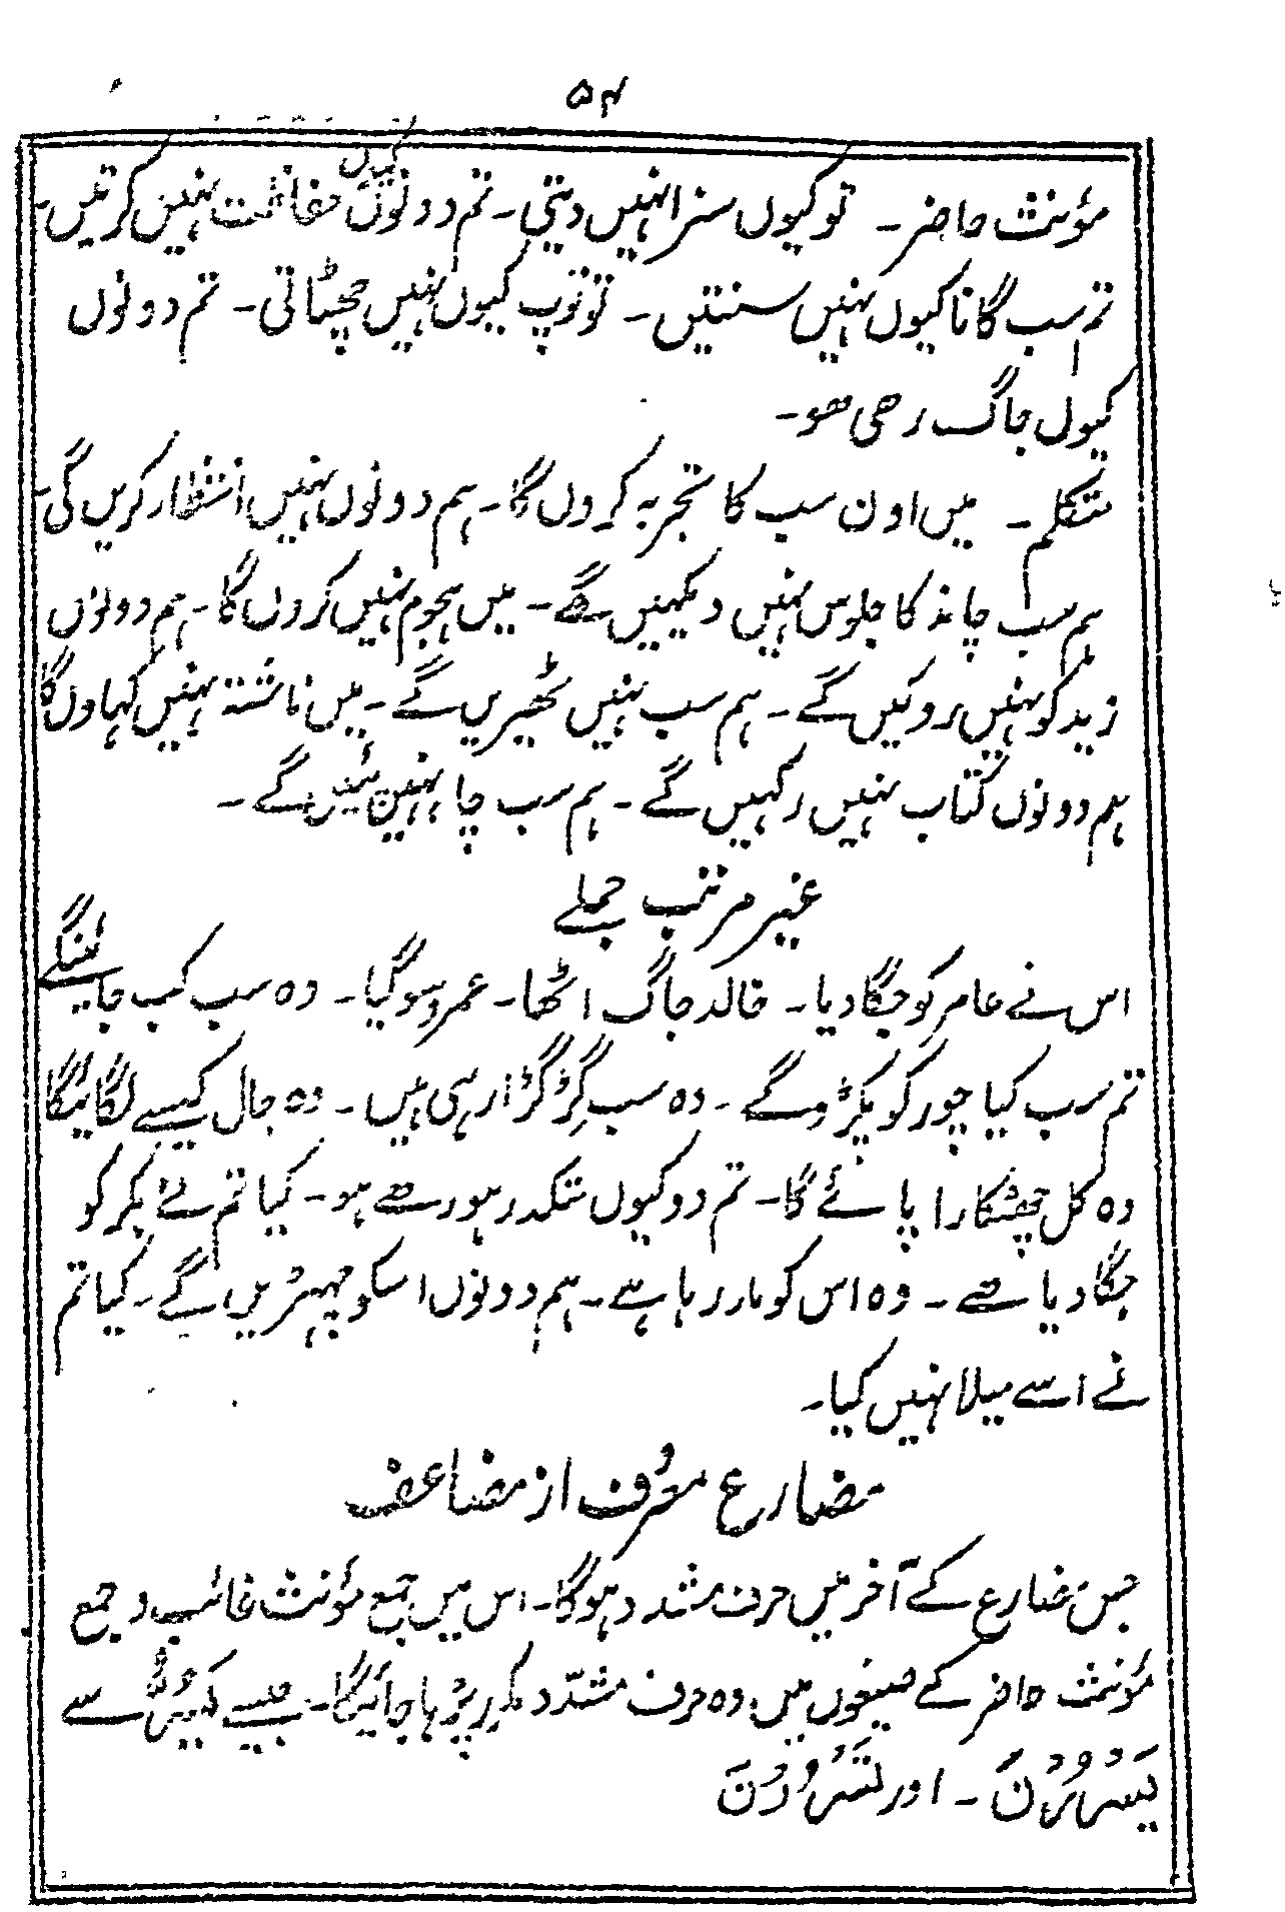 ۵۴
مؤنث حاضر۔ تو کیوں سزا نہیں دیتی۔ تم دونوں کیوں حفاظت نہیں کرتیں۔
تم سب گانا کیوں نہیں سنتیں۔ تو توپ کیوں نہیں چھپاتی۔ تم دونوں
کیوں جاگ رھی ھو۔
متکلم۔ میں اون سب کا تجربہ کروں گا۔ ہم دونوں نہیں انتظار کریں گی۔
ہم سب چاند کا جلوس نہیں دیکھیں گے۔ میں ہجوم نہیں کروں گا۔ ہم دونوں
زید کو نہیں روکیں گے۔ ہم سب نہیں ٹھیریں گے۔ میں ناشتہ نہیں کہاوں گا
ہم دونوں کتاب نہیں رکہیں گے۔ ہم سب چا نہیں پئیں گے۔
غیر مرتب جملے
اس نے عامر کو جگا دیا۔ خالد جاگ اٹھا۔ عمرو سو گیا۔ وہ سب کب جائینگے
تم سب کیا چور کو پکڑو گے۔ وہ سب گڑگڑا رہی ہیں۔ وہ جال کیسے لگائیگا
وہ کل چھٹکارا پائے گا۔ تم دو کیوں متکدر ہو رہے ہو۔ کیا تم نے بکر کو
جگا دیا ہے۔ وہ اس کو مار رہا ہے۔ ہم دونوں اسکو چہیڑیں گے۔ کیا تم
نے اسے میلا نہیں کیا۔
مضارع معرف از مضاعف
جس مضارع کے آخر میں حرف مشدد ہوگا۔ اس میں جمع مؤنث غائب و جمع
مؤنث حاضر کے صیغوں میں وہ حرف مشدّد مکرر پڑہا جائیگا۔ جیسے یَسُرُّ سے
یَسْرُرْنَ۔ اور تَسْرُرْنَ